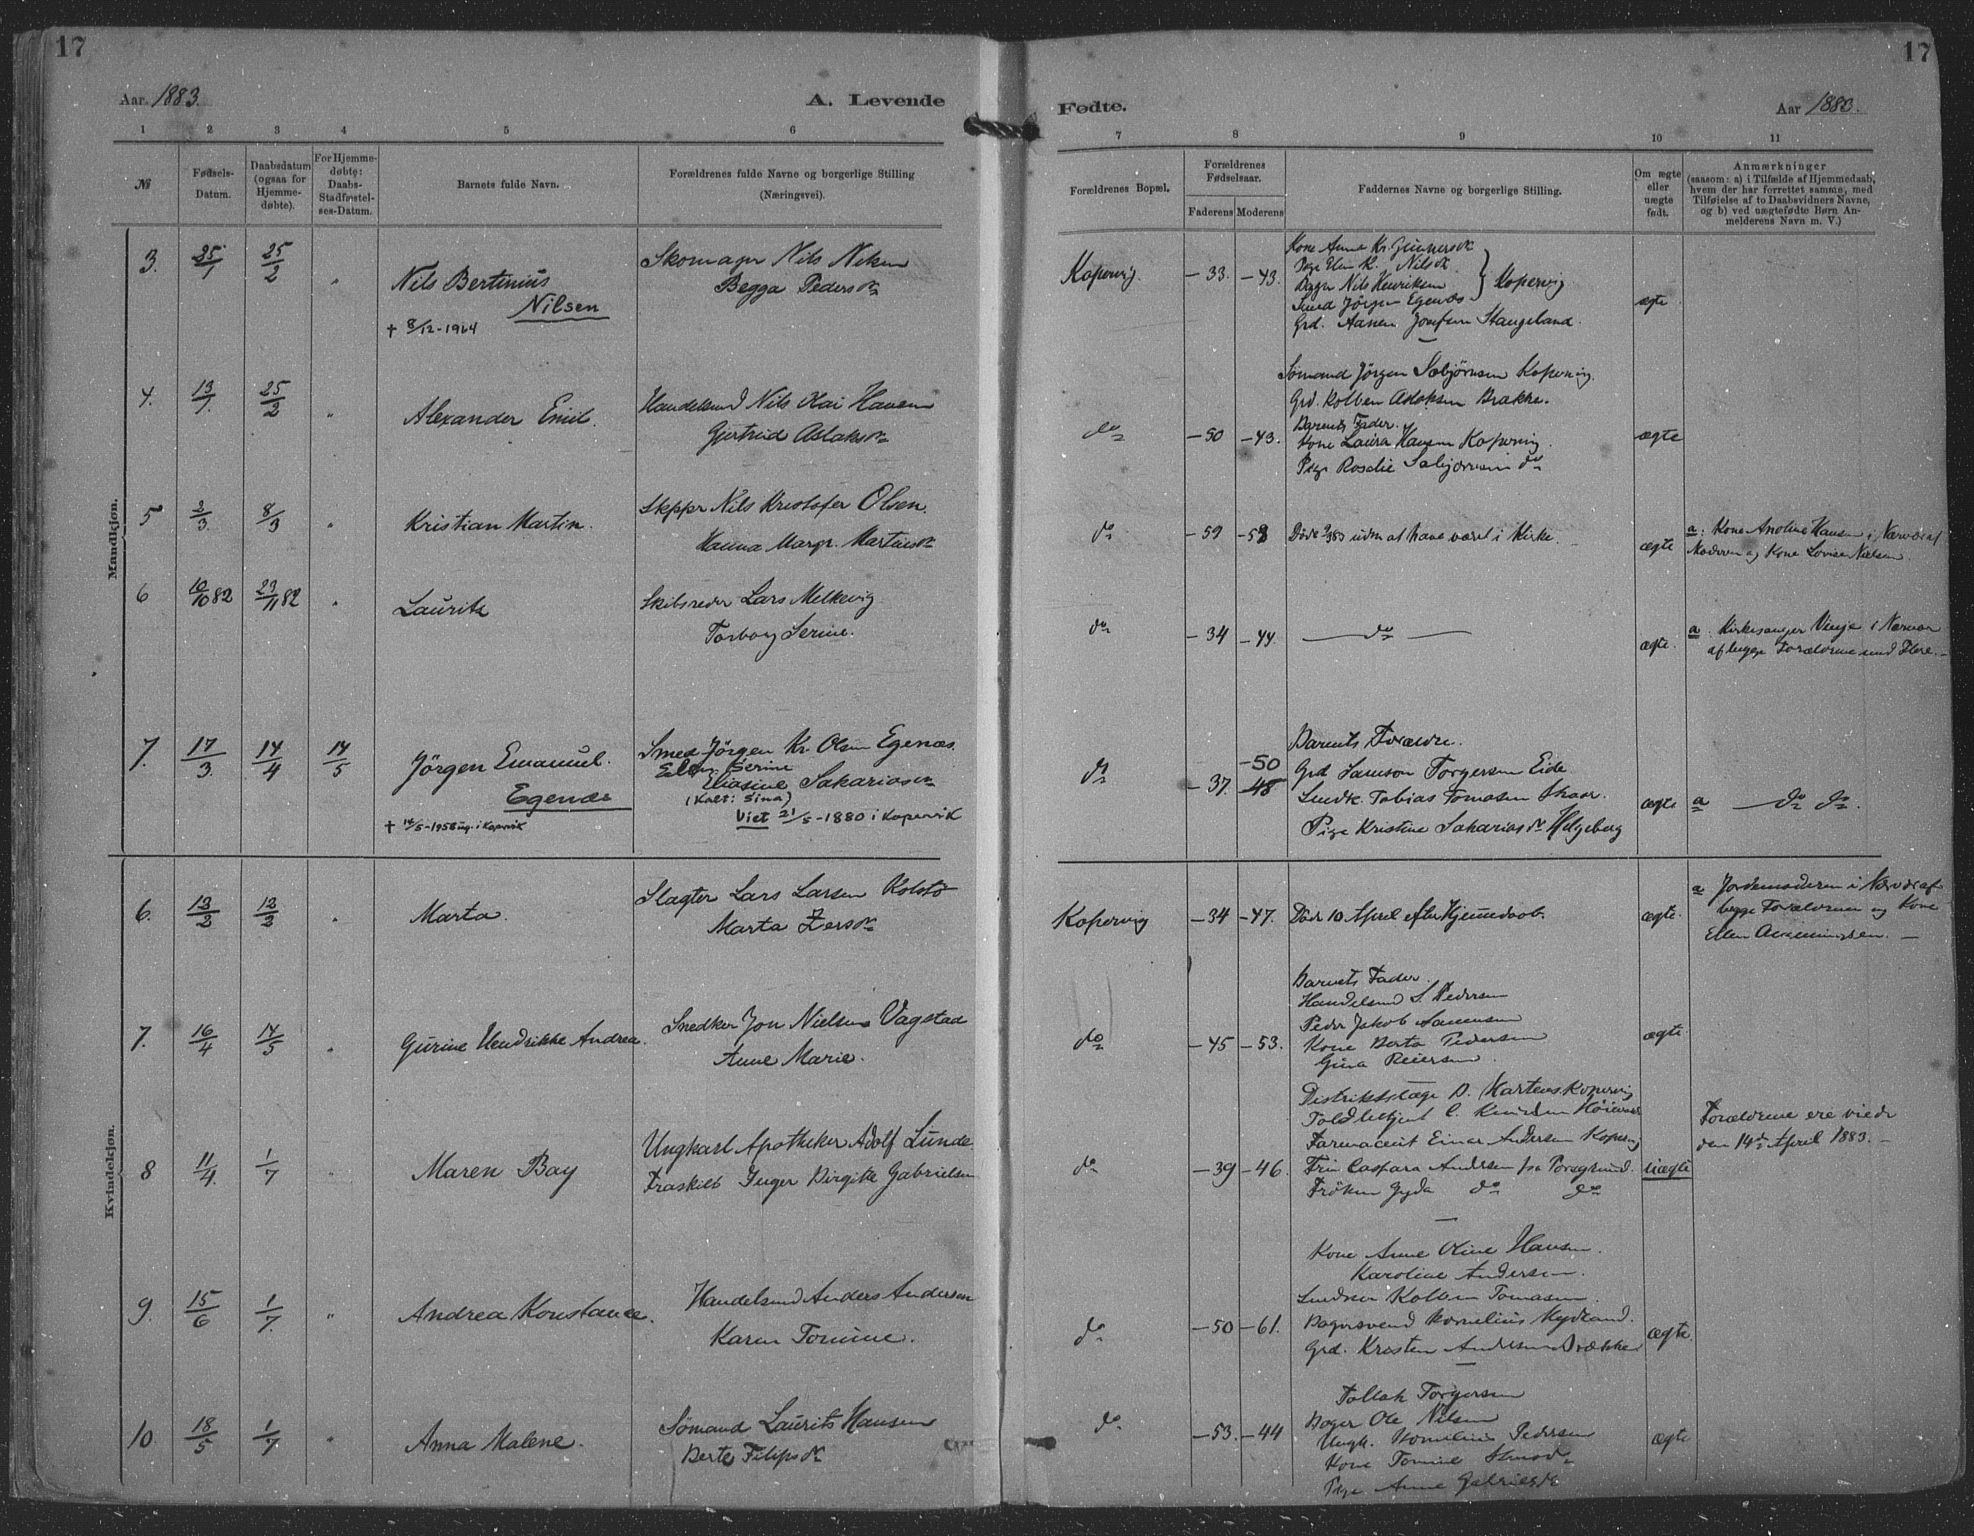 17
17
Aar 1883.
A. Levende
Fødte.
Aar 1883.
1 2 3 4 5 6 7 8 9 10 11
№
Fødsels-
Datum.
Daabsdatum
(ogsaa for
Hjemme-
døbte).
For Hjemme-
døbte:
Daabs-
Stadfæstel-
ses-Datum.
Barnets fulde Navn.
Forældrenes fulde Navne og borgerlige Stilling
(Næringsvei).
Forældrenes Bopæl.
Forældrenes
Fødselsaar.
Faderens Moderens
Faddernes Navne og borgerlige Stilling.
Om ægte
eller
uægte
født.
Anmærkninger
(saasom: a) i Tilfælde af Hjemmedaab,
hvem der har forrettet samme, med
Tilføielse af to Daabsvidners Navne,
og b) ved uægtefødte Børn An-
melderens Navn m. V.)
Mandkjøn.
3. 25/1 25/2 "
Nils Bertinius
Nilsen
† 8/12-1964
Nils
Begga Pedersdr
Kopervig. -33. -43.
Kone Anne Kr.
Nils Henriksen
Jörgen Egenæs
Kopervig
Grd. Stangeland.
ægte
4. 13/1. 25/2 "
Alexander Emil.
Handelsmd Nils Kai Hansen
Gjertrud Aslaksdr
do -50 -43.
Sømand Jörgen Kopervig.
Grd. Kolben Aslaksen Brakke.
Barnets Fader.
Kone Laura Hansen Kopervig.
Pige Rosalie do
ægte
5 2/3. 8/3 "
Kristian Martin.
Skppr Nils Kristofer Olsen.
Hanna Margr. Martinsdr
do -59
Døde uden at have været i Kirke.
ægte
a: Kone Hansen i Nærvær af
Moderen og Kone Lovise Nielsen.
6 10/10 82 23/11 82 "
Laurits
Skibsreder Lars Melkevig
Torborg Serine.
do -34 -44.
do
ægte.
a. Kirkesanger Vinje i Nærvær
af begge Forældrene med Flere.
7. 17/3. 14/4 14/5
Jörgen Emanuel.
Egenæs
† 14/5-1958 i Kopervik
Smed Jörgen Kr. Olsen Egenæs.
Serine
Eliasine Sakariasdr
(Kalt: Sina)
Viet 21/5-1880 i Kopervik
do -37. -50
48
Barnets Forældre.
Grd Samson Torgersen Eide
Tobias Tomasen
Pige Kristine Sakariasdr Helgeberg
ægte
a do do.
Kvindekjøn.
6. 13/2 13/2 "
Marta.
Slagter Lars Larsen Kolstö
Marta
Kopervig -34 -47.
Död 10 April efter Hjemmedaab.
ægte.
a Jordemoderen i Nærvær af
begge Forældrene og Kone
Ellen
7. 16/4 14/5 "
Gurine Hendrikke Andrea.
Snedker Jon Nielsen Vagstad
Anne Marie.
do -45 -53.
Barnets Fader.
Handelsmd S. Pedersen
Peder Jakob
Kone Berta Pedersen
Gina Reiersen.
ægte
8 11/4. 1/7 "
Maren Bay
Ungkarl Apotheker Adolf Lunde.
Fraskilt Inger Birgitte Gabrielsen
do -39 -46.
Distriktslæge D. Martens Kopervig
Toldbetjent C. Knudsen
Farmaceut Einar Andersen Kopervig
Frk Caspara Andersen fra Porsgrund.
Fröken Gyda do do
uægte
Forældrene ere viede
den 14de April 1883.
9. 15/6 1/7. "
Andrea Konstance.
Handelsmd Anders Andersen
Karen Tomine.
do -50 -61.
Kone Anne Oline Hansen.
Karoline Andersen.
Kolben Tomasen.
Bagersvend Kornelius Mydland.
Grd. Kristen Andersen Brække
ægte.
10. 18/5 1/7 "
Anna Malene.
Sømand Laurits Hansen
Berte Filipsdr
do -53. -44
Tollak Torgersen
Bager Ole Nilsen
Ungk. Pedersen
Kone Tomine
Pige Anne Gabrielsdr
ægte